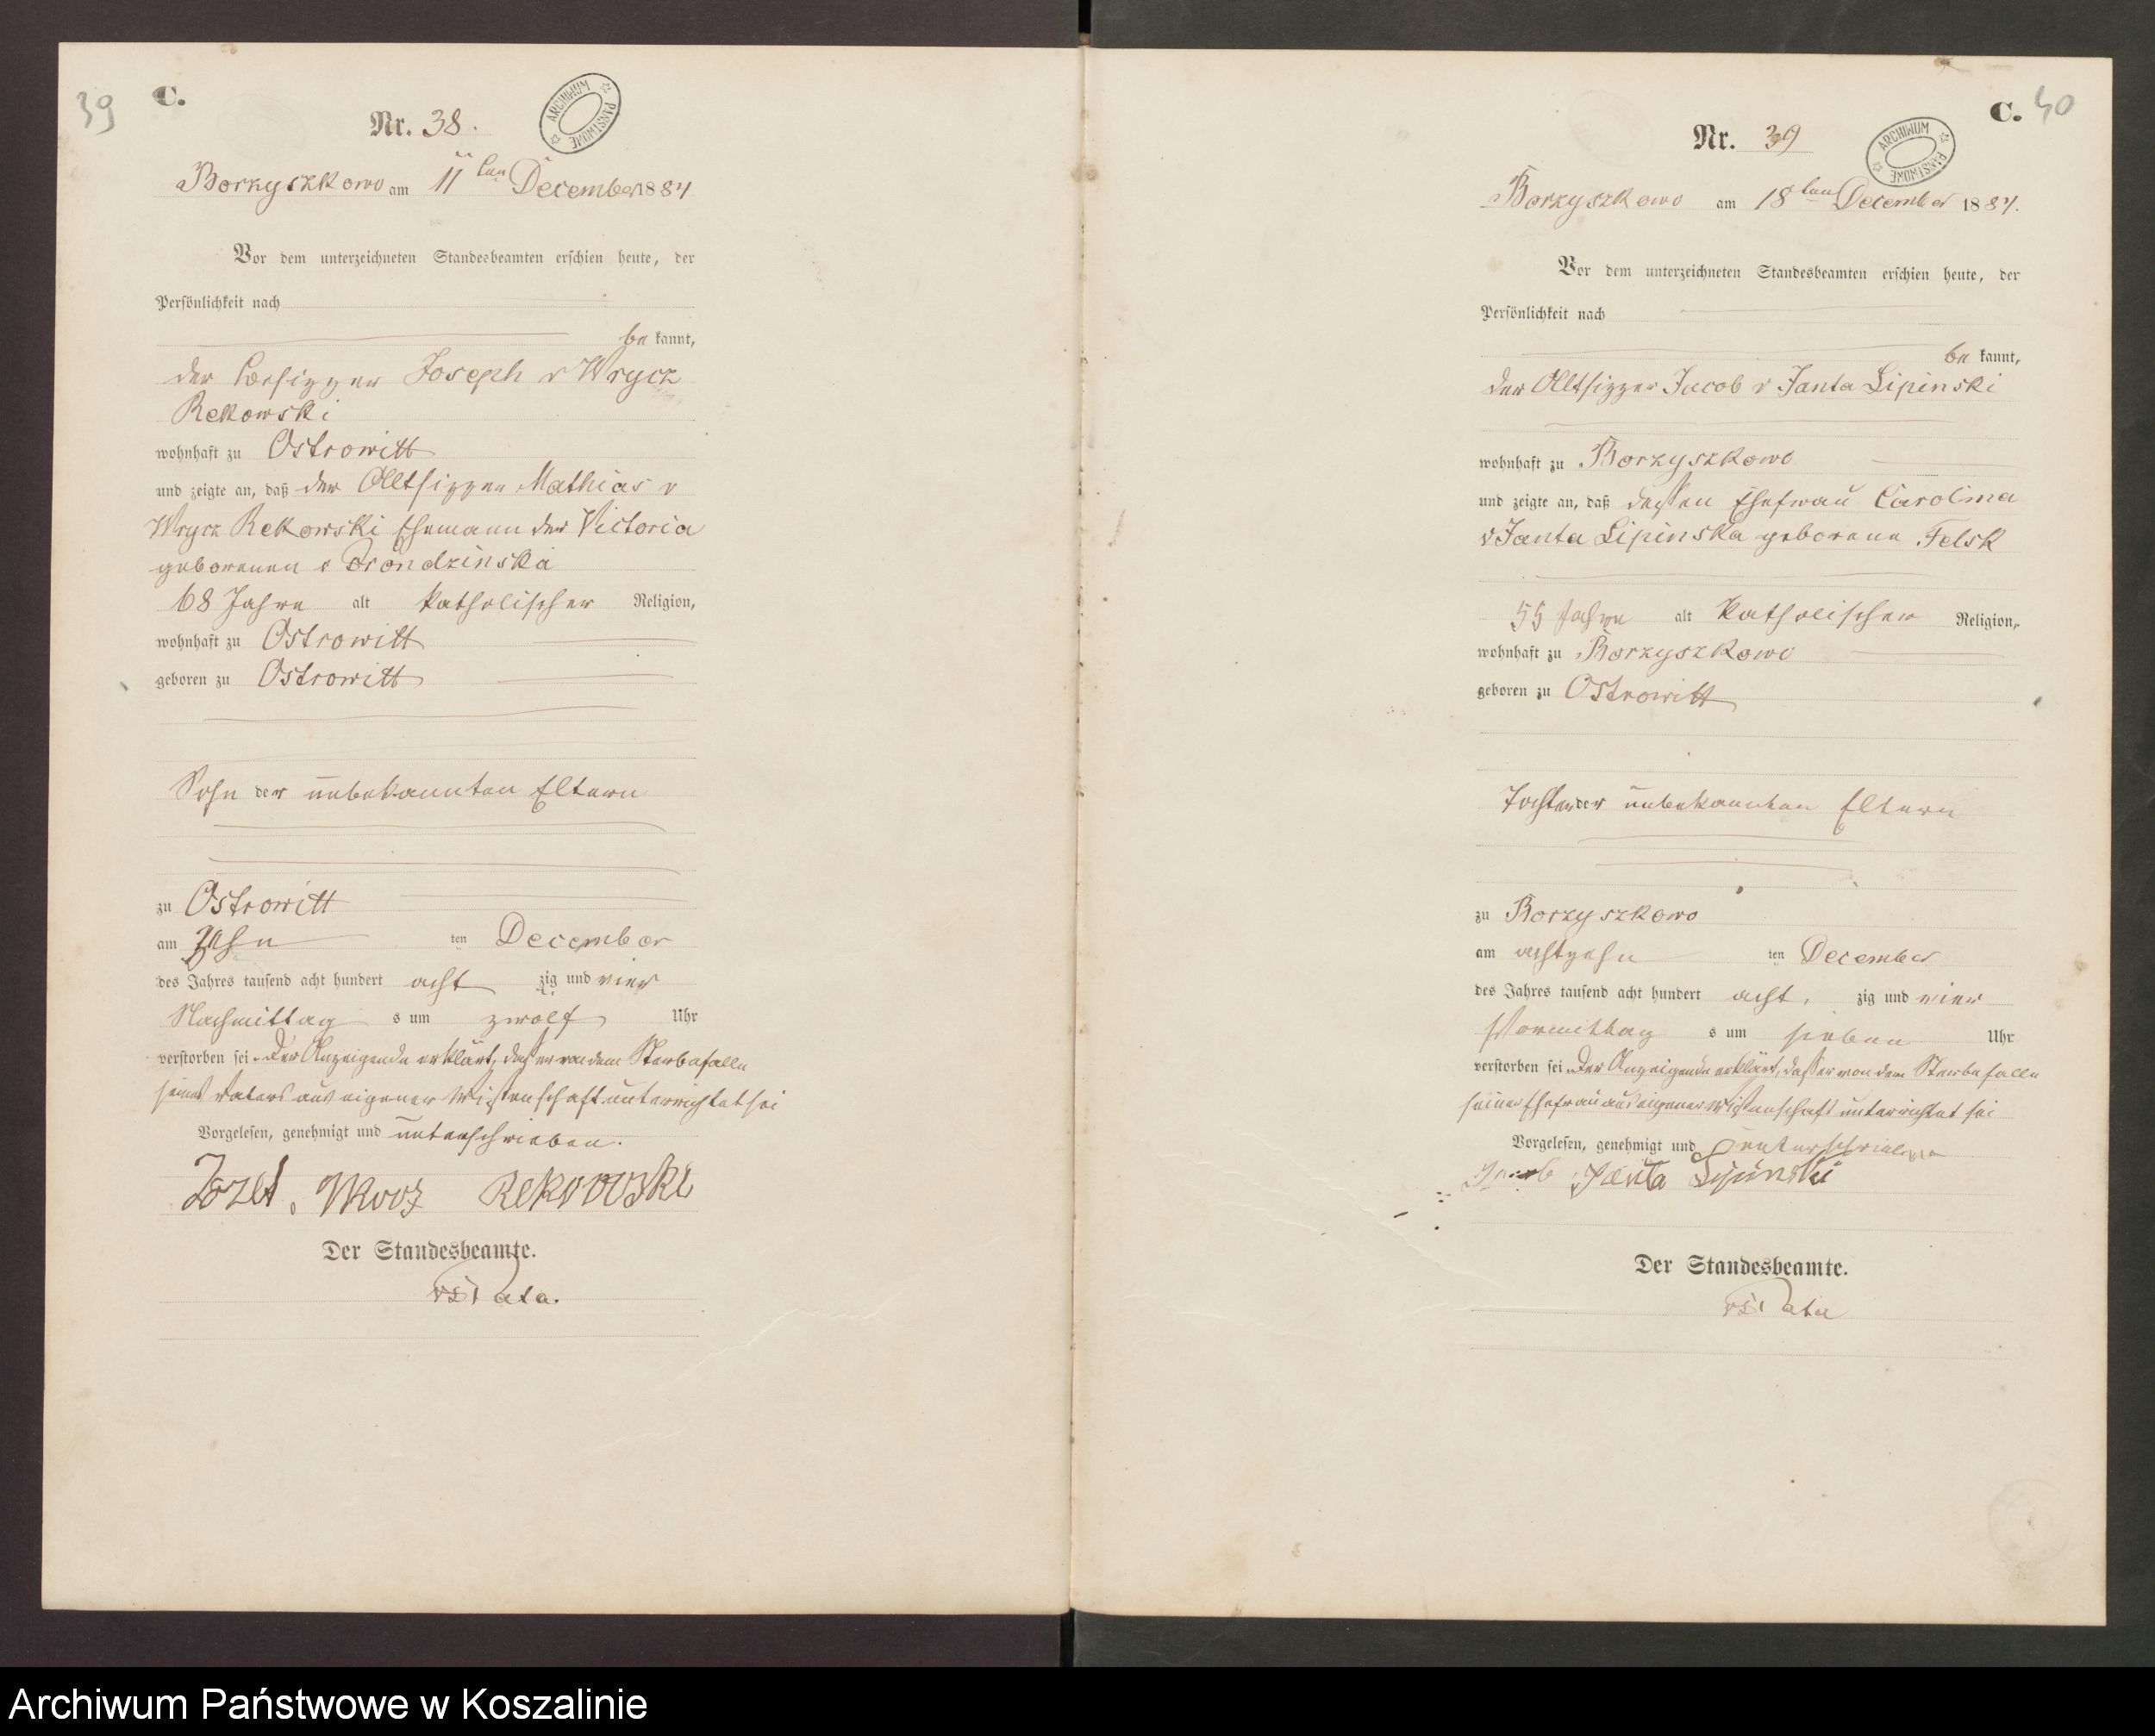 39
C.
Nr. 38.
ARCHIWUM PAŃSTWOWE
Borzyszkowo am 11ten December 1884
Vor dem unterzeichneten Standesbeamten erschien heute, der
Persönlichkeit nach
be kannt,
der Besitzer Joseph v Wrycz
Rekowski
wohnhaft zu Ostrowitt
und zeigte an, daß der Altsitzer Mathias v
Wrycz Rekowski Ehemann der Victoria
geborenen v
68 Jahre alt katholischer Religion,
wohnhaft zu Ostrowitt
geboren zu Ostrowitt
Sohn der unbekannten Eltern
zu Ostrowitt
am zehn ten December
des Jahres tausend acht hundert acht zig und vier
Nachmittag s um zwölf Uhr
verstorben sei. Der Anzeigende erklärt, daß er von dem Sterbefalle
seines Vaters aus eigener Wissenschaft unterrichtet sei
Vorgelesen, genehmigt und unterschrieben.
Józef Rekowski
Der Standesbeamte.
C. 40
Nr. 39
ARCHIWUM PAŃSTWOWE
Borzyszkowo am 18ten December 1884.
Vor dem unterzeichneten Standesbeamten erschien heute, der
Persönlichkeit nach
be kannt,
der Altsitzer Jacob v Janta Lipinski
wohnhaft zu Borzyszkowo
und zeigte an, daß dessen Ehefrau Carolina
v Janta Lipinska geborene Felsk
55 Jahre alt katholischer Religion,
wohnhaft zu Borzyszkowo
geboren zu Ostrowitt
Tochter der unbekannten Eltern
zu Borzyszkowo
am achtzehn ten December
des Jahres tausend acht hundert acht zig und vier
Vormittag s um sieben Uhr
verstorben sei. Der Anzeigende erklärt, daß er von dem Sterbefalle
seiner Ehefrau aus eigener Wissenschaft unterrichtet sei
Vorgelesen, genehmigt und unterschrieben
Jacob Janta Lipinski
Der Standesbeamte.
Archiwum Państwowe w Koszalinie